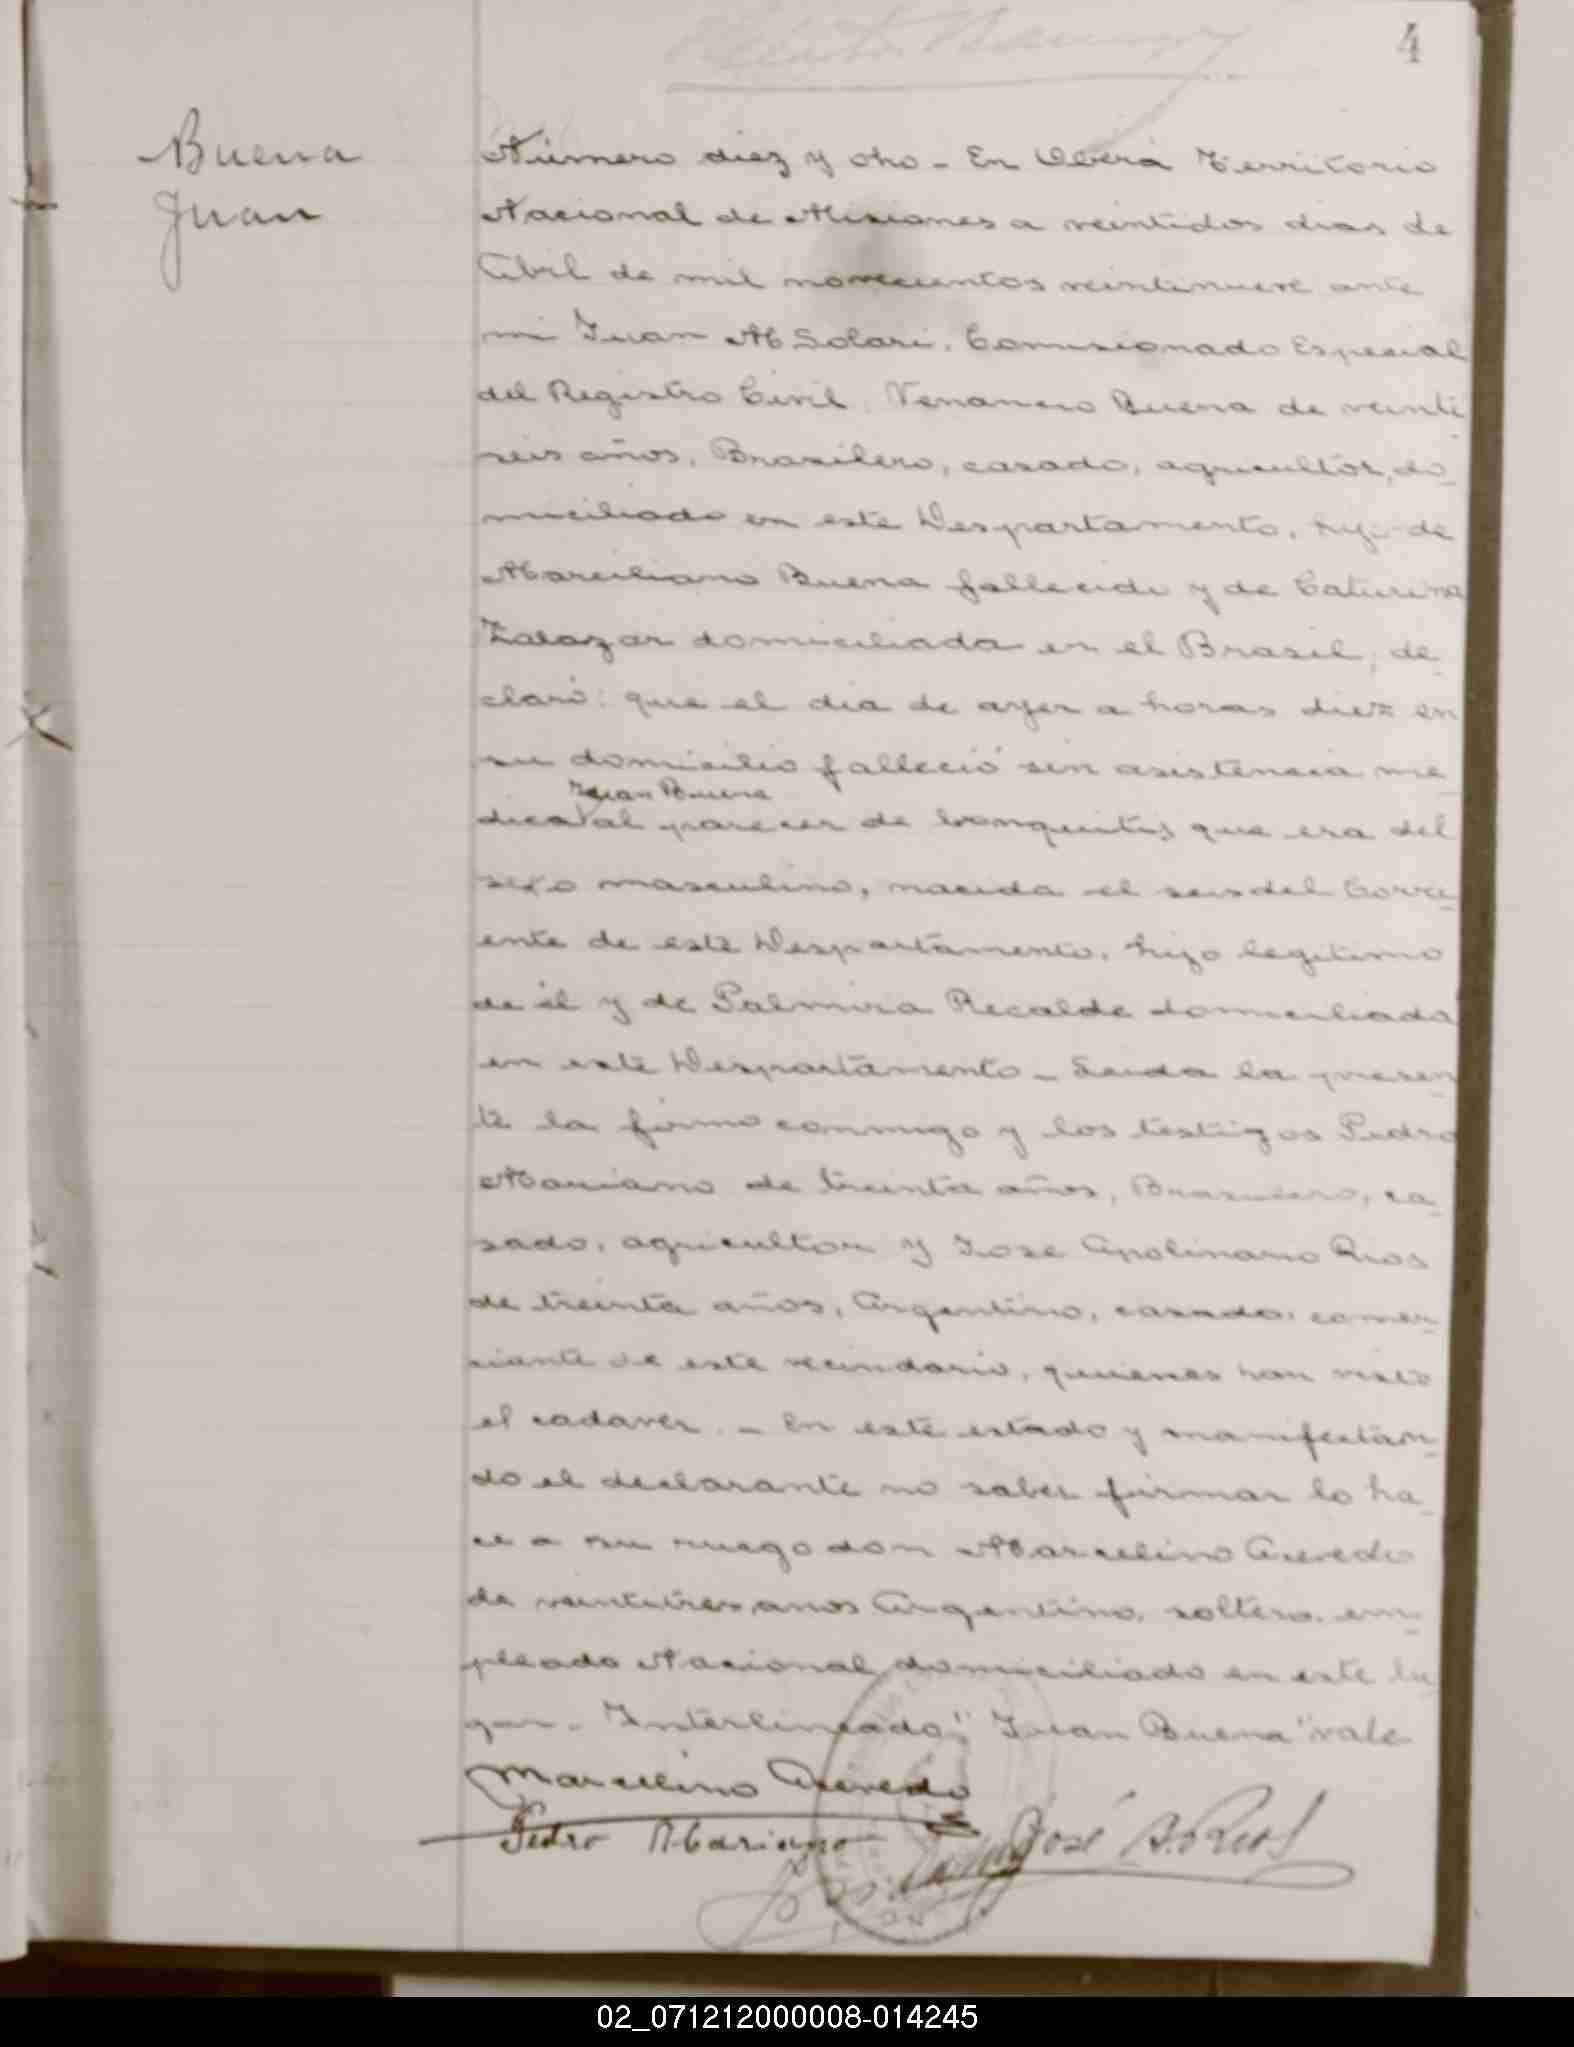 4
Buena
Juan
Número diez y oho - En Oberá Territorio
Nacional de Misiones a veintidos dias de
Abril de mil novecientos veintinueve ante
mi Juan M Solari, Comisionado Especial
del Registro Civil, Venancio Buena de veinti
seis años, Brasilero, casado, agricultor, do_
miciliado en este Despartamento, hijo de
Marciliano Buena fallecido y de Caturina
Zalazar domiciliada en el Brasil, de_
claró: que el dia de ayer a horas diez en
su domicilio falleció sin asistencia me_
Juan Buena
dica al parecer de bronquitis que era del
sexo masculino, nacida el seis del Corri_
ente de este Despartamento, hijo legitimo
de él y de Palmira Recalde domiciliada
en este Despartamento - Leida la presen_
te la firmo conmigo y los testigos Pedro
Mariano de treinta años, Brasilero, ca_
sado, agricultor y José Apolinario Rios
de treinta años, Argentino, casado, comer_
ciante de este vecindario, quienes han visto
el cadaver. - En este estado y manifestan_
do el declarante no saber firmar lo ha_
ce a su ruego don Marcelino Acevedo
de veintitres anos Argentino, soltero, em_
pleado Nacional domiciliado en este lu_
gar - Interlineado "Juan Buena" vale
Marcelino Acevedo
Pedro Mariano
José A. Rios
02_071212000008-014245